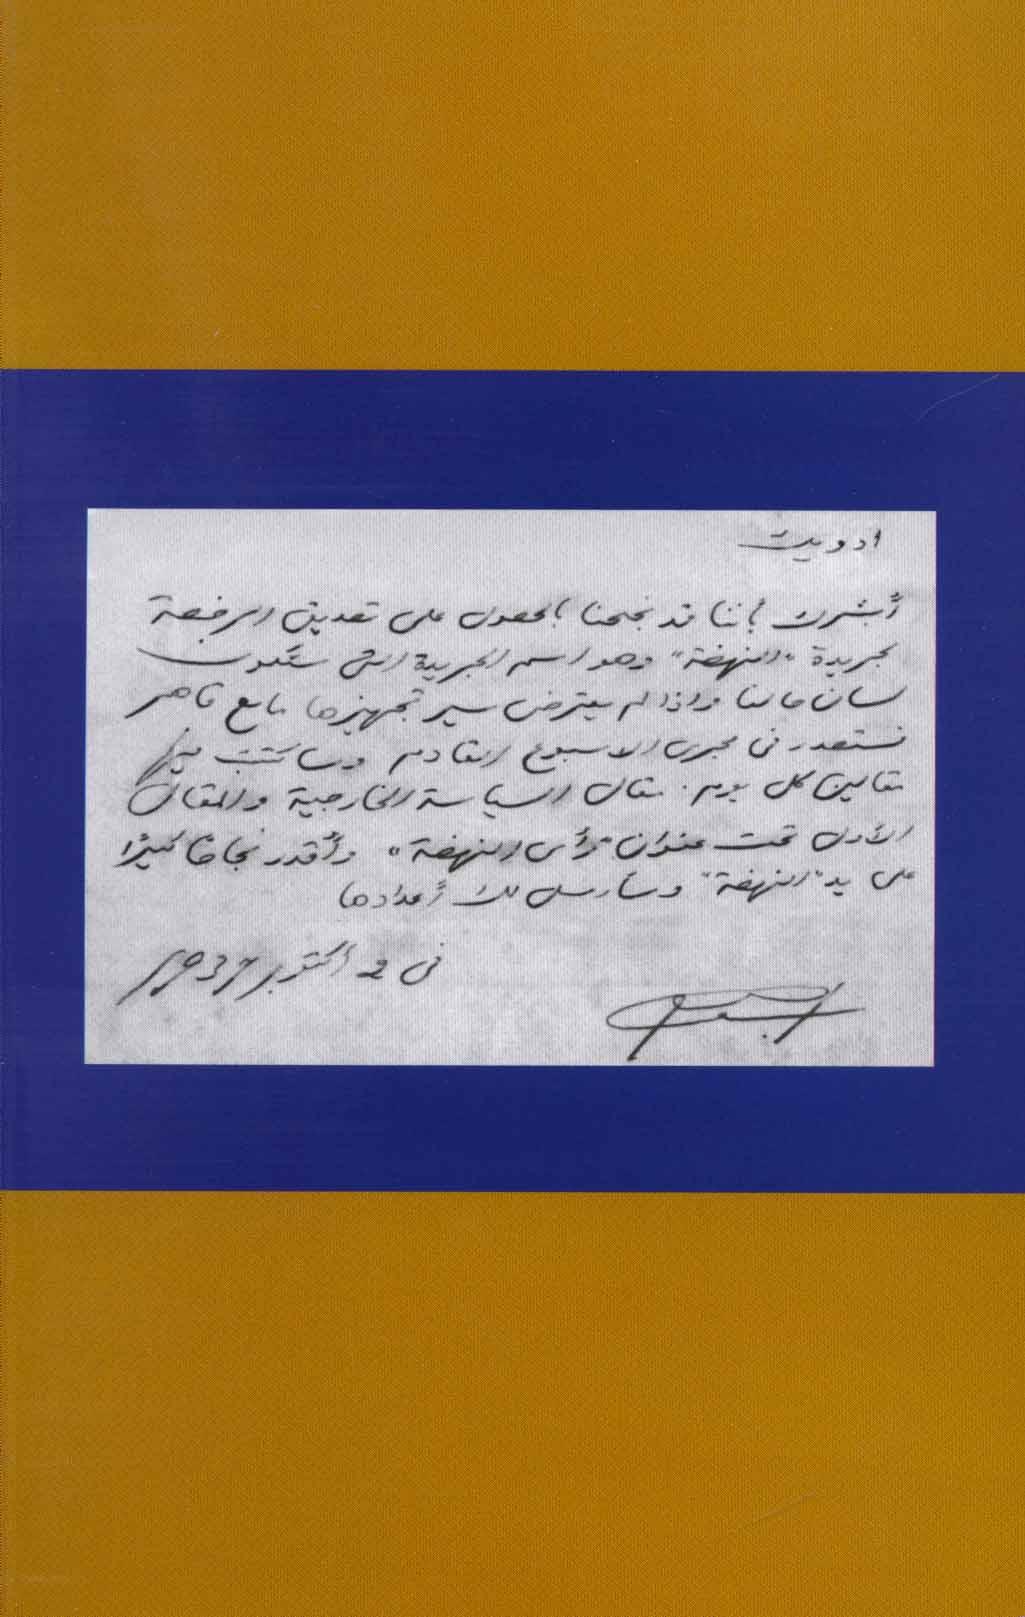 ادويك
أبشرك بأننا قد نجحنا بالحصول على تصديق الرخصة
لجريدة "النهضة" وهو اسم الجريدة التي ستكون
لسان حالنا واذا لم يعترض سير تجهيزها مانع قاهر
فستصدر في مجرى الاسبوع القادم وسأكتب فيها
مقالين كل يوم. مقال السياسة الخارجية والمقال
الأول تحت عنوان "رأي النهضة" وأقدر نجاحًا كبيرًا
على يد "النهضة" وسأرسل لك أعدادها
في 2 أكتوبر